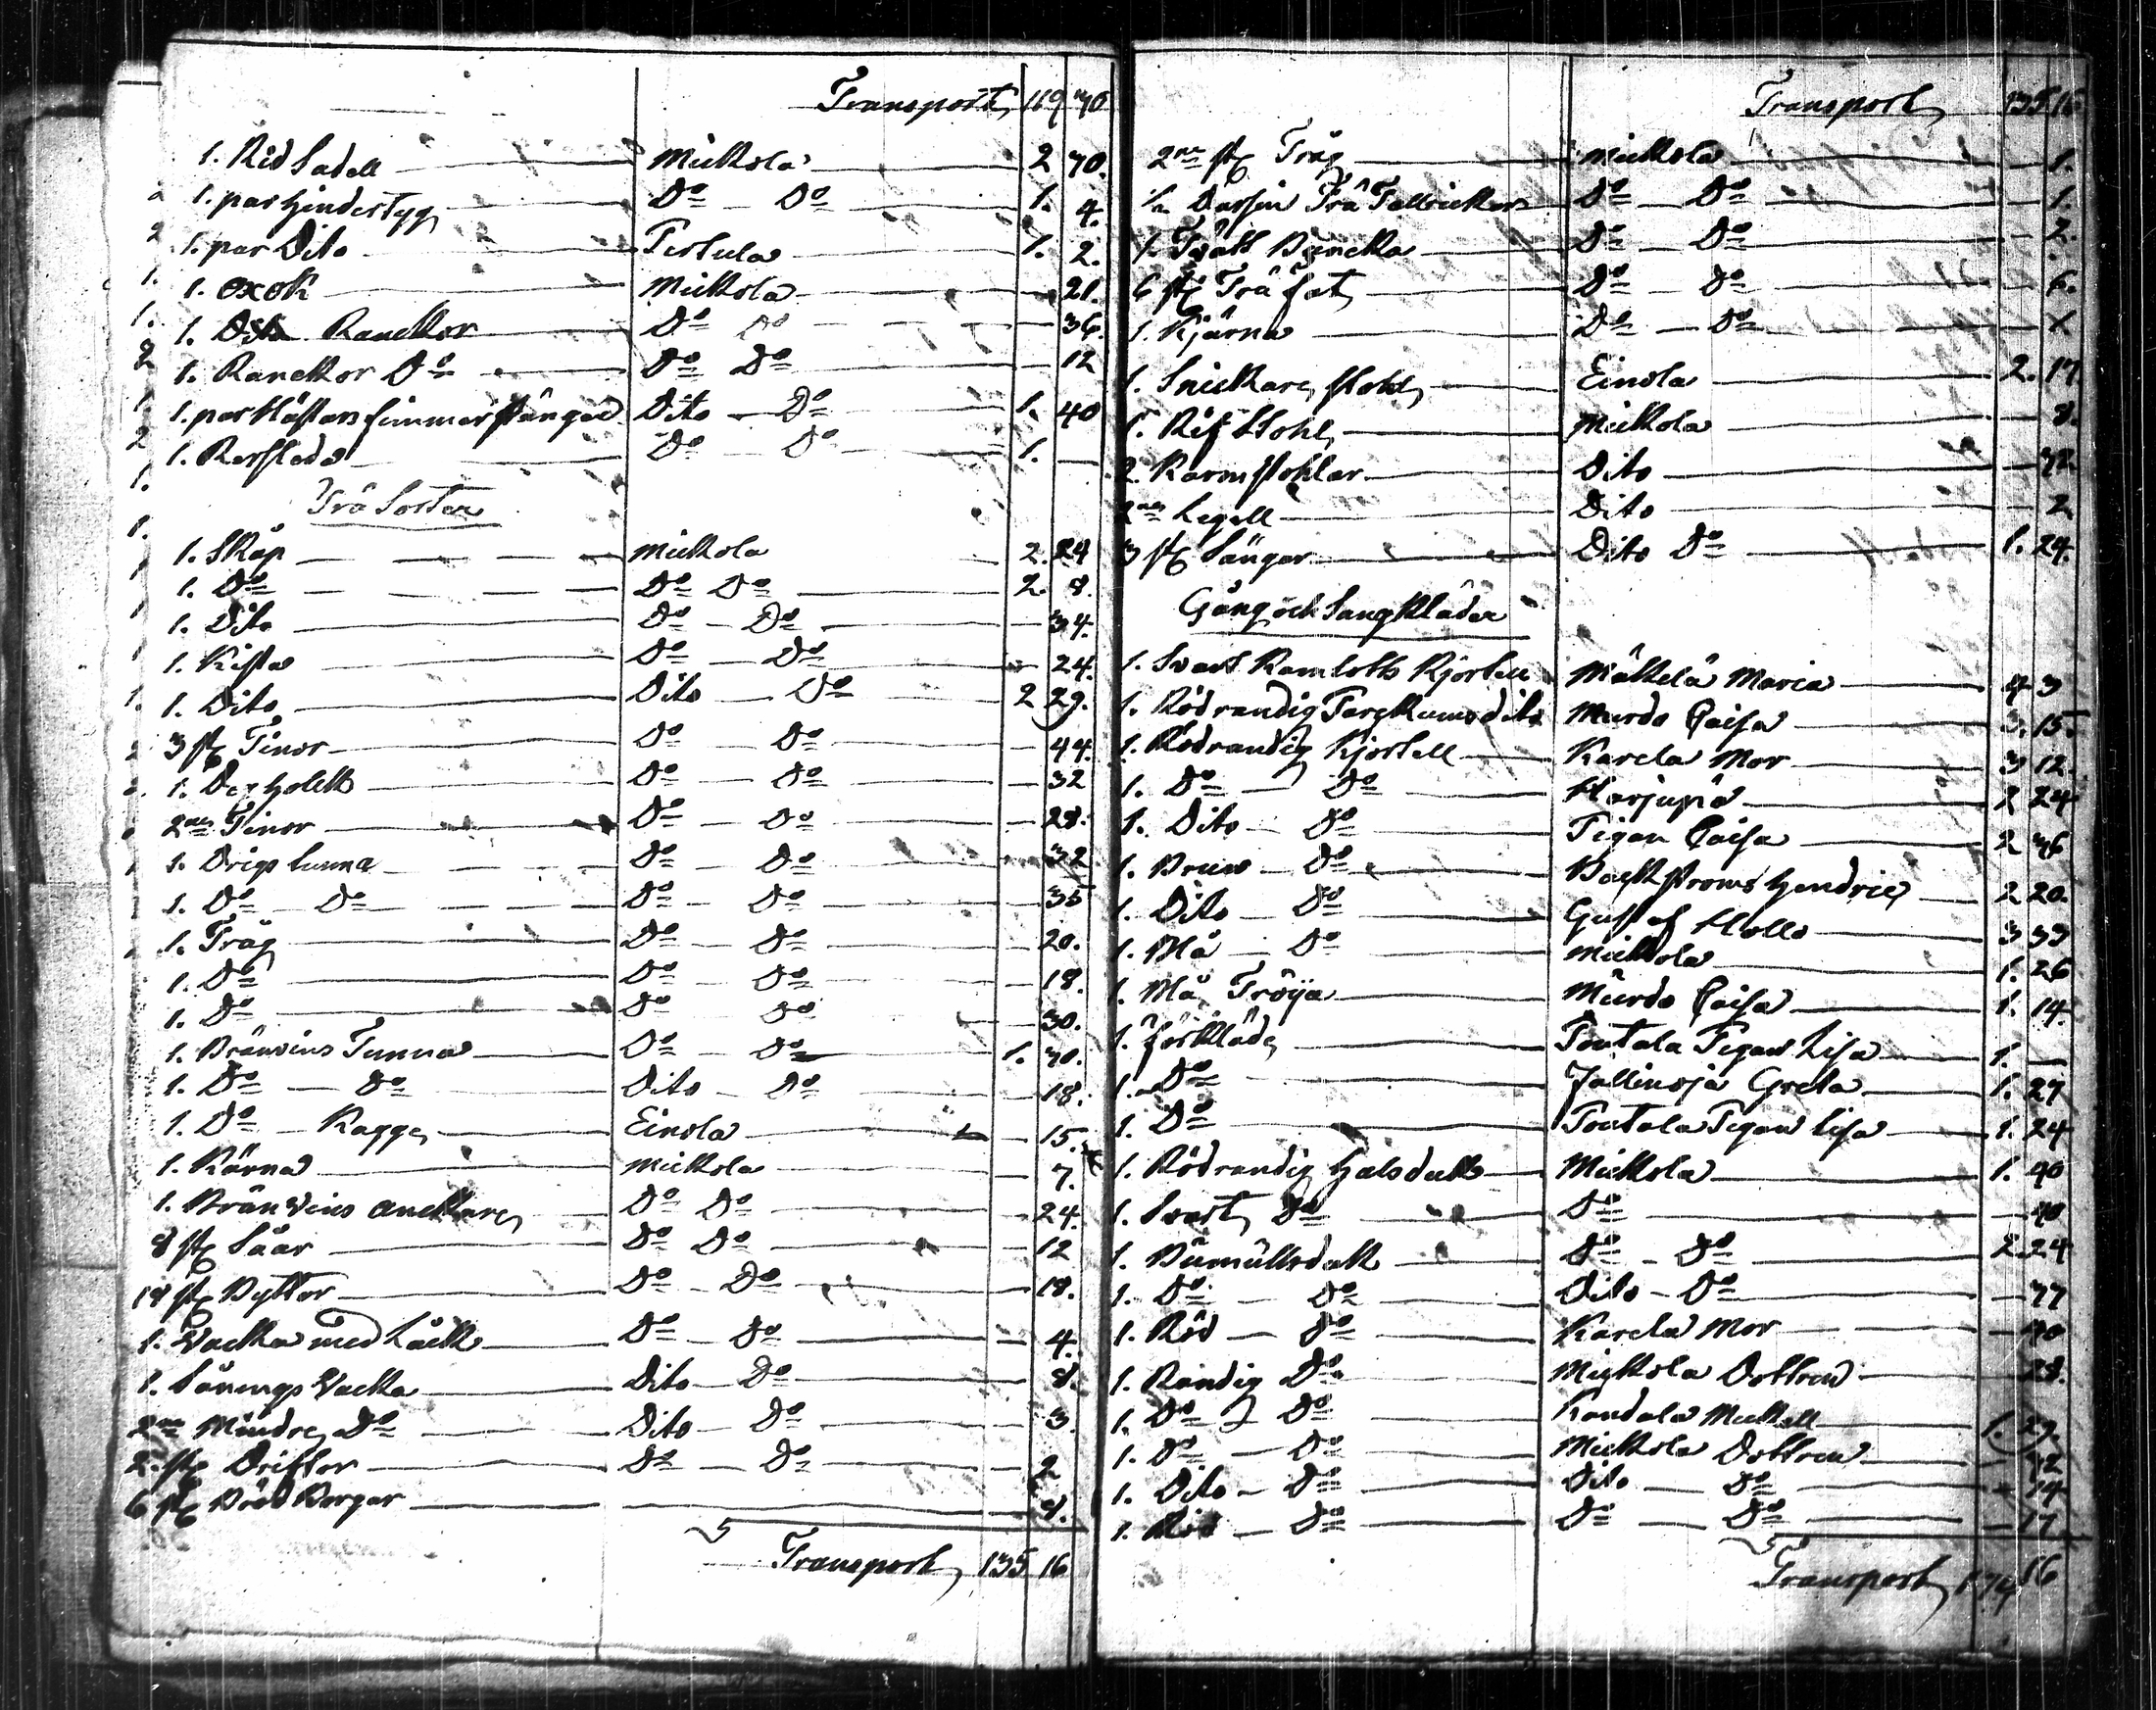 Transport 119 40
1. Rid Sadell Mickola 2 40.
1. par Hindertyg Do Do 1. 4.
1. par Dito Pertula 1. 2.
1. oxok Mickola 21.
1. Dito Ranckor Do Do 36.
1. Ranckor Do Do Do 12
1. par Dito Do 1. 40
1. Do Do 1. —
Trä Sorter
1. Skåp Mickola 2. 24
1. Do Do Do 2. 8.
1. Dito Do Do 34.
1. Kista Do Do 24.
1. Dito Dito Do 2 29.
3 st Tinor Do Do 44.
1. Do Do 32
2ne Tinor Do Do 28.
1. Drigs tunna Do Do 32
1. Do Do Do Do 35
1. Tråg Do Do 20.
1. Do Do Do 18.
1. Do Do Do 30.
1. Bränvins Tunna Do Do 1. 40.
1. Do Do Dito Do 18.
1. Do Kagge Einola 15.
1. Kärna Mickola 7.
1. Bränvins anckare Do Do 24.
8 st Såar Do Do 12
18 st Byttor Do Do 18.
1. Vacka med Låck Do Do 4.
1. Sånings Vacka Dito Do 8.
2ne Mindre Do Dito Do 3.
2. st Do Do 2
6 st Bröd Korgar 8.
Transport 135 16
Transport 135 16
2ne st Tråg Mickola 1.
½ Dussin Trä Tallrickar Do Do 1.
1. Do Do 2.
6 st Trä fat Do Do 6.
1. Kjärna Do Do
1. Snickare stohl Einola 2. 17
1. Stohl Mickola 8.
2. Karmstohlar Dito 32.
2ne Legell Dito 2
3 st Sängar Dito Do 1. 24.
Gång och Sängkläder
1. Svart Kamlotts Kjortell Mäkelä Maria 4 3
1. Rödrandig dito Caisa 3. 15.
1. Rödrandig Kjortell Karela Mor 3 12.
1. Do Do Harjupä 2 24
1. Dito Do Pigan Caisa 2 46
1. Brun Do Backströms Hendric 2 20.
1. Dito Do Gustaf Hollo 3 33
1. Blå Do Mickola 1. 26
1. Blå Tröija Caisa 1. 14.
1. förkläde Pontala Pigan Lisa 1. —
1. Do Greta 1. 27
1. Do Pontala Pigan Lisa 1. 24
1. Rödrandig Halsduk Mickola 1. 40
1. Svart Do Do 40
1. Bumullsduk Do Do 2. 24
1. Do Do Dito Do
1. Röd Do Karela Mor 40
1. Randig Do Mickola Dottren 28.
1. Do Do Kandala Mickell 1. 29.
1. Do Do Mickola Dottren 42
1. Dito Do Dito Do 14
1. Röd Do Do Do 17
Transport 174 16